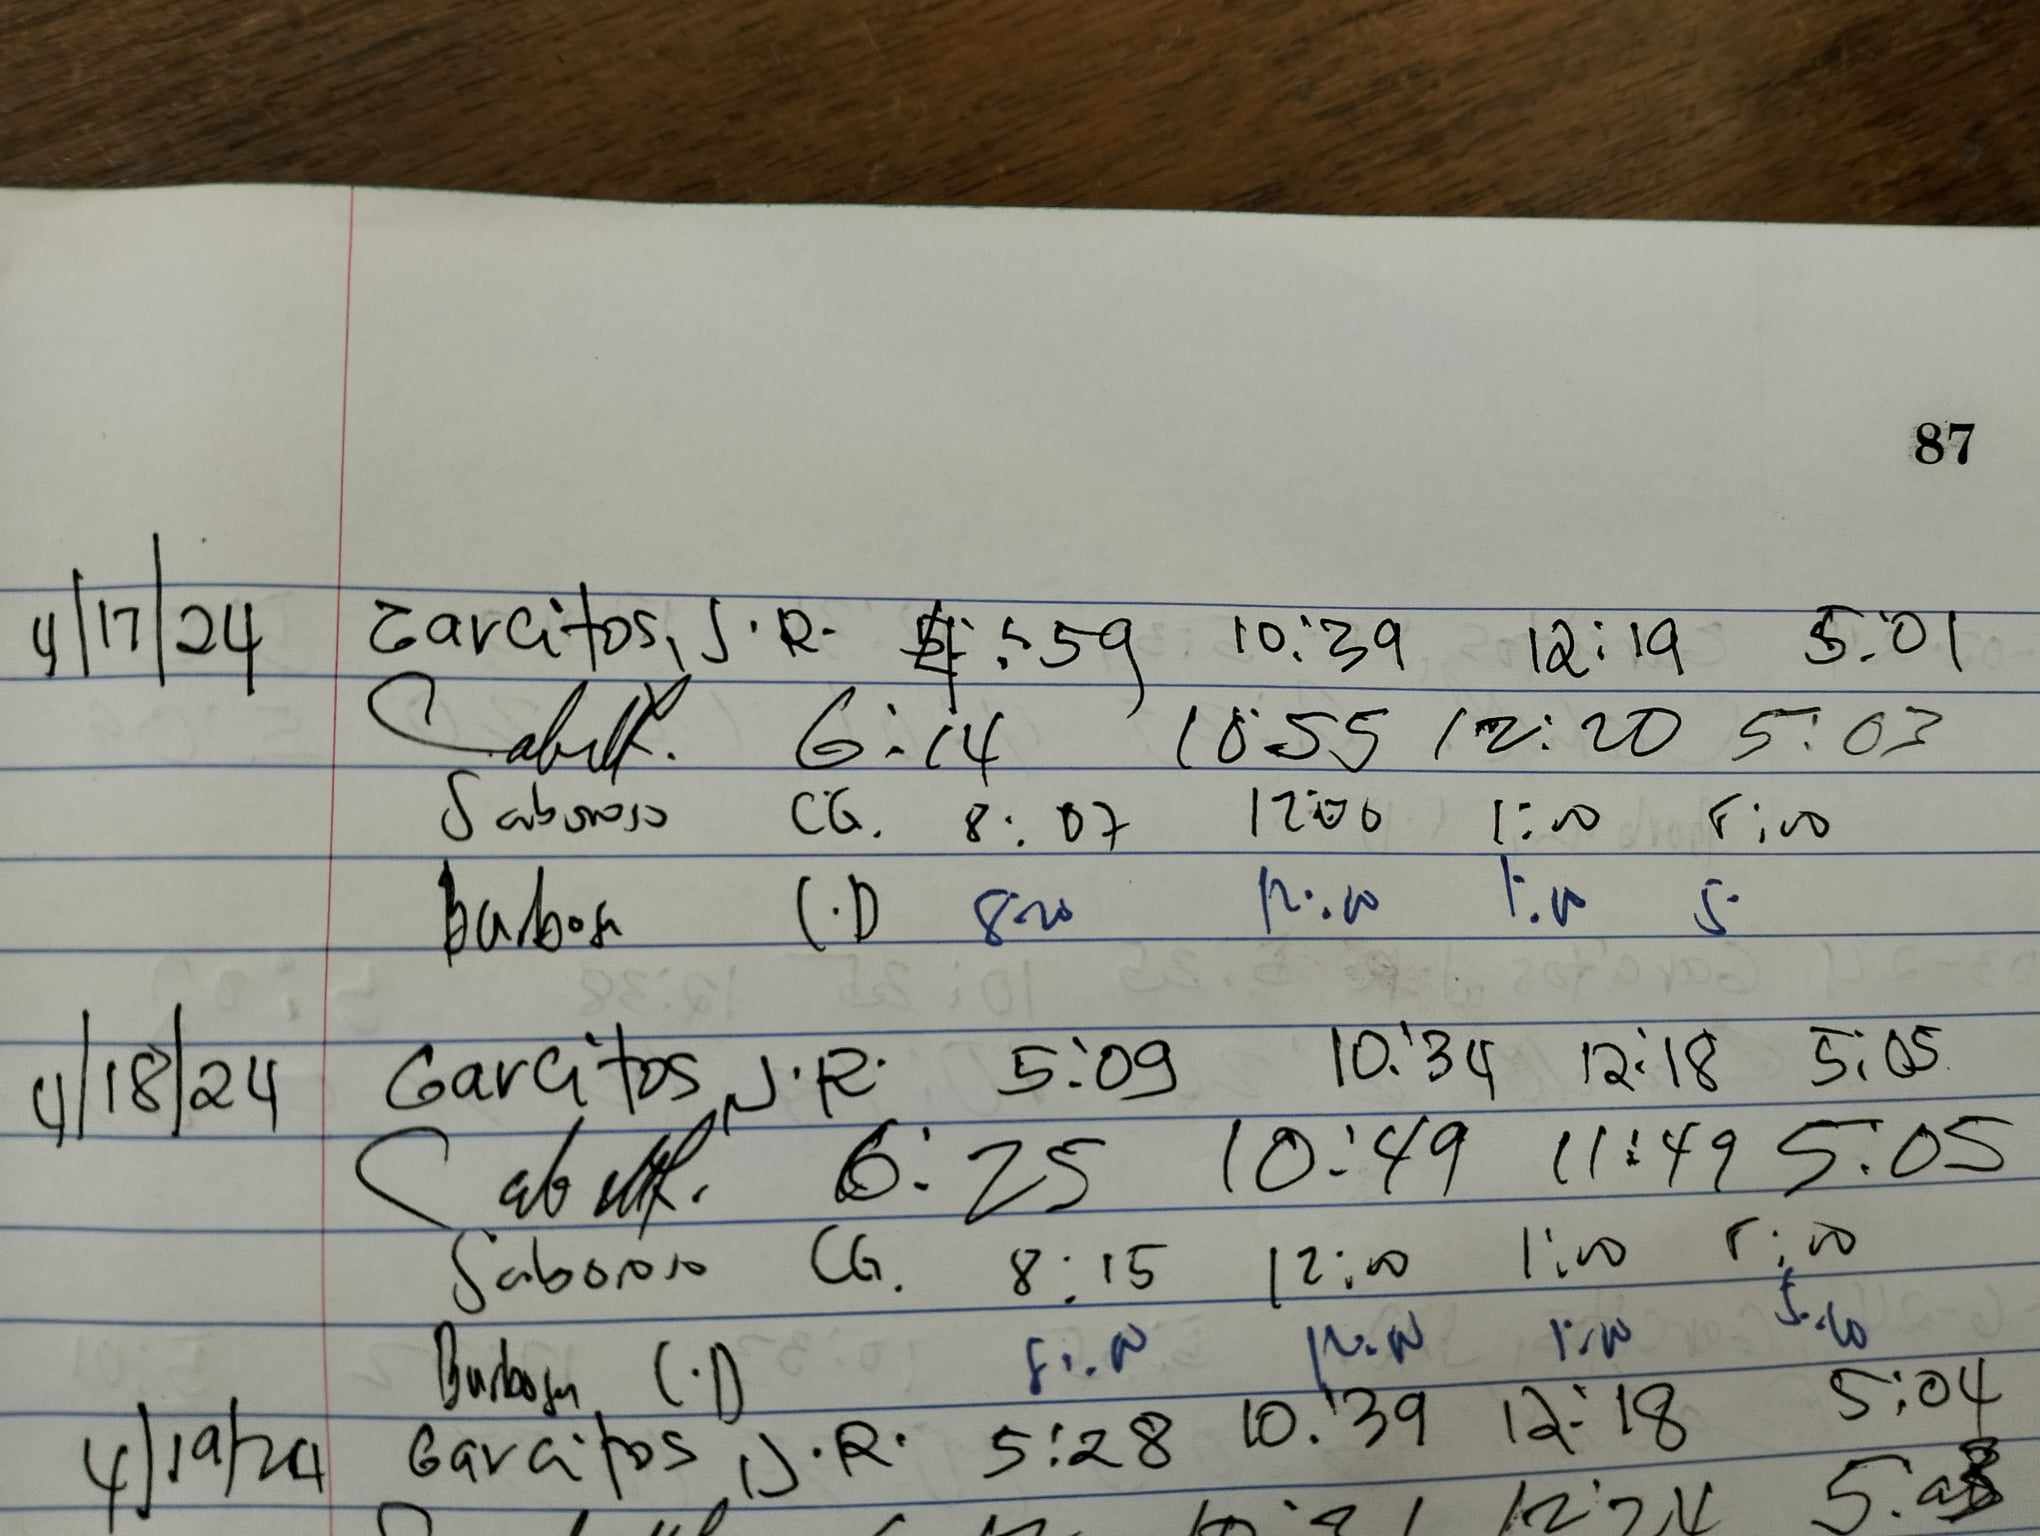 87
4/17/24 Garcitos, J.R. 4:59 10:39 12:19 5:01
6:14 10:55 12:20 5:03
Saboroso CG. 8:07 12:00 1:00 5:00
Barbosa C.D 8:00 12:00 1:00 5:
4/18/24 Garcitos, J.R. 5:09 10:34 12:18 5:05
6:25 10:49 11:49 5:05
Saboroso CG. 8:15 12:00 1:00 5:00
Barbosa C.D 8:00 12:00 1:00 5:00
4/19/24 Garcitos, J.R. 5:28 10:39 12:18 5:04